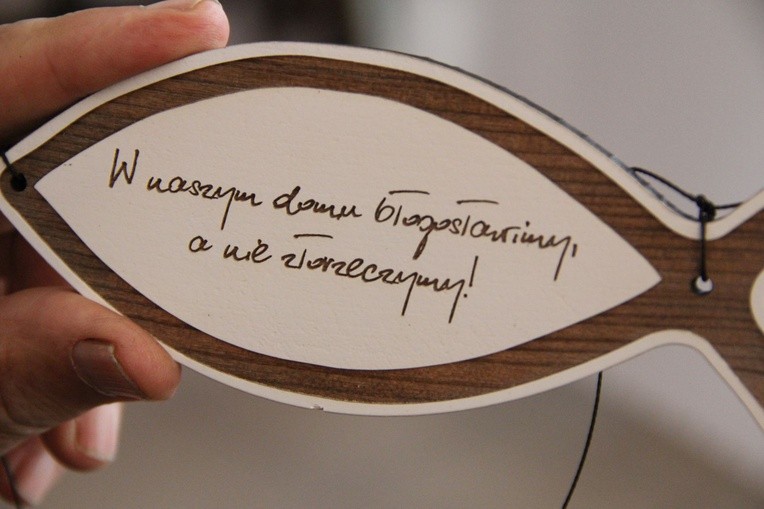 W naszym domu błogosławimy,
a nie złorzeczymy!